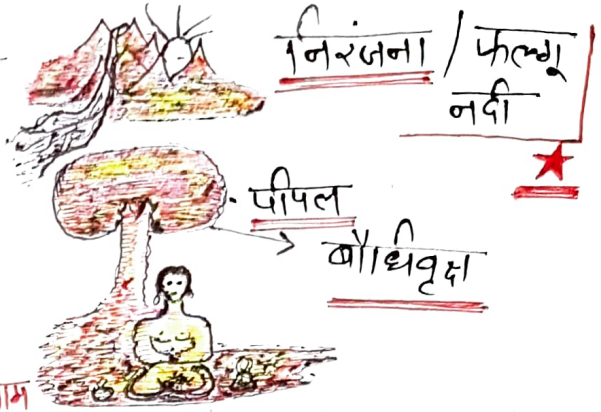 निरंजना / फल्गू
नदी
पीपल
बौधिवृक्ष